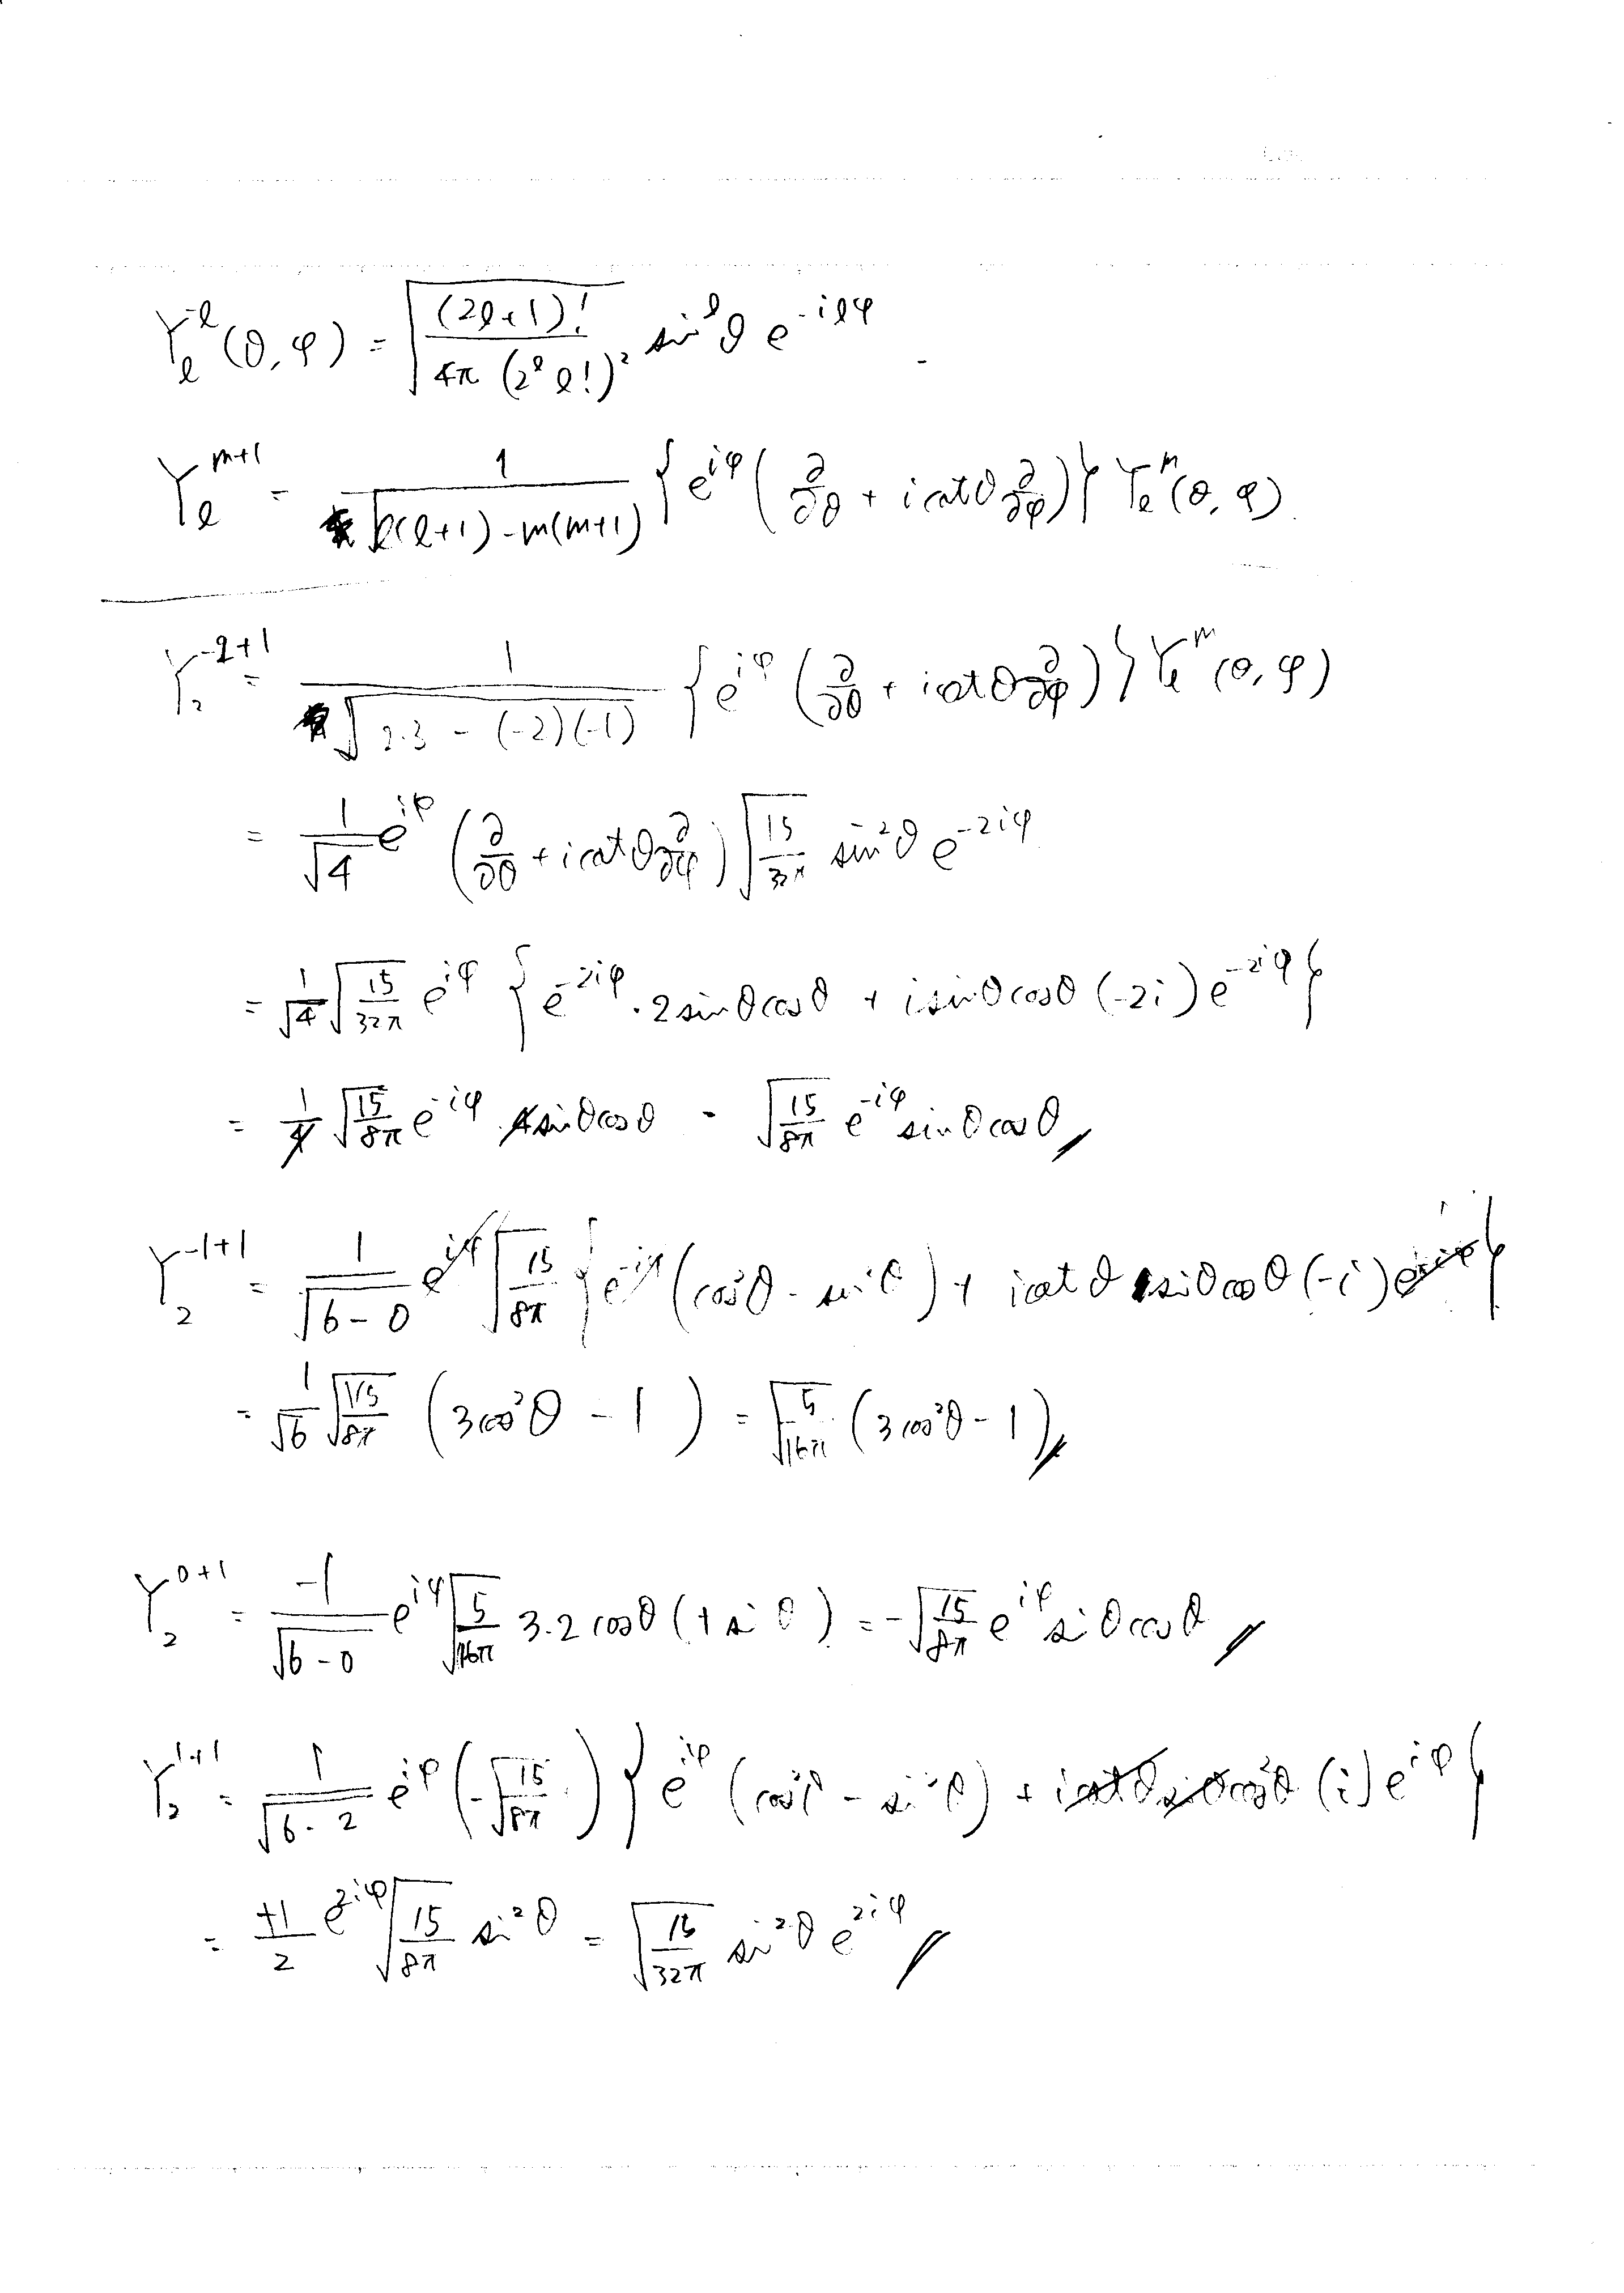 Y_l^{-l}(θ, φ) = √((2l+1)! / 4π(2^l l!)^2) sin^l θ e^{-ilφ}
Y_l^{m+1} = 1/√(l(l+1) - m(m+1)) {e^{iφ}(∂/∂θ + i cot θ ∂/∂φ)} Y_l^m(θ, φ)
Y_2^{-2+1} = 1/√(2·3 - (-2)(-1)) {e^{iφ}(∂/∂θ + i cot θ ∂/∂φ)} Y_l^m(θ, φ)
= 1/√4 e^{iφ} (∂/∂θ + i cot θ ∂/∂φ) √(15/32π) sin^2 θ e^{-2iφ}
= 1/√4 √(15/32π) e^{iφ} {e^{-2iφ} · 2 sin θ cos θ + i sin θ cos θ (-2i) e^{-2iφ}}
= 1/4 √(15/8π) e^{-iφ} 4 sin θ cos θ = √(15/8π) e^{-iφ} sin θ cos θ
Y_2^{-1+1} = 1/√(6-0) e^{iφ} √(15/8π) {e^{-iφ}(cos^2 θ - sin^2 θ) + i cot θ sin θ cos θ (-i) e^{-iφ}}
= 1/√6 √(15/8π) (3 cos^2 θ - 1) = √(5/16π) (3 cos^2 θ - 1)
Y_2^{0+1} = -1/√(6-0) e^{iφ} √(5/16π) 3·2 cos θ (+ sin θ) = -√(15/8π) e^{iφ} sin θ cos θ
Y_2^{1+1} = 1/√(6-2) e^{iφ} (-√(15/8π)) {e^{iφ} (cos^2 θ - sin^2 θ) + i cot θ sin θ cos^2 θ (i) e^{iφ}}
= +1/2 e^{2iφ} √(15/8π) sin^2 θ = √(15/32π) sin^2 θ e^{2iφ}